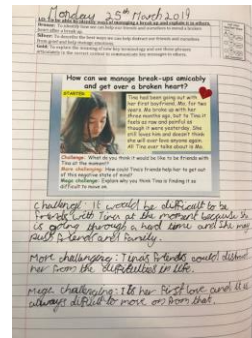 Monday 25th March 2019
How can we manage break-ups amicably
and get over a broken heart?
STARTER
Tina had been going out with
her first boyfriend, Mo, for two
years. Mo broke up with her
three months ago, but to Tina it
feels as raw and painful as
though it were yesterday. She
still loves him and doesn't think
she will ever love anyone again.
All Tina ever talks about is Mo.
Challenge: What do you think it would be like to be friends with
Tina at the moment?
More challenging: How could Tina's friends help her to get out
of this negative state of mind?
Mega challenge: Explain why you think Tina is finding it so
difficult to move on.
Challenge: It would be difficult to be
friends with Tina at the moment because she
is going through a hard time and she may
push friends and family.
More challenging: Tina's friends would distract
her from the difficulties in life.
Mega challenging: It's her first love and it is
always difficult to move on from that.